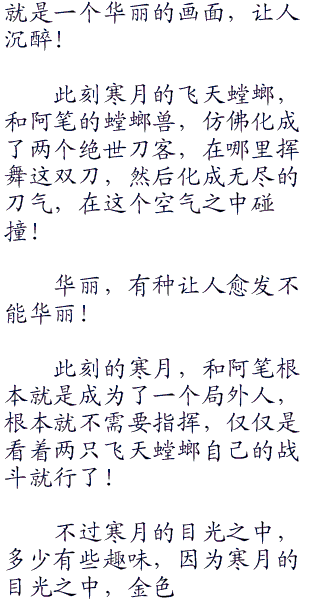 就是一个华丽的画面，让人
沉醉！
此刻寒月的飞天螳螂，
和阿笔的螳螂兽，仿佛化成
了两个绝世刀客，在哪里挥
舞这双刀，然后化成无尽的
刀气，在这个空气之中碰
撞！
华丽，有种让人愈发不
能华丽！
此刻的寒月，和阿笔根
本就是成为了一个局外人，
根本就不需要指挥，仅仅是
看着两只飞天螳螂自己的战
斗就行了！
不过寒月的目光之中，
多少有些趣味，因为寒月的
目光之中，金色